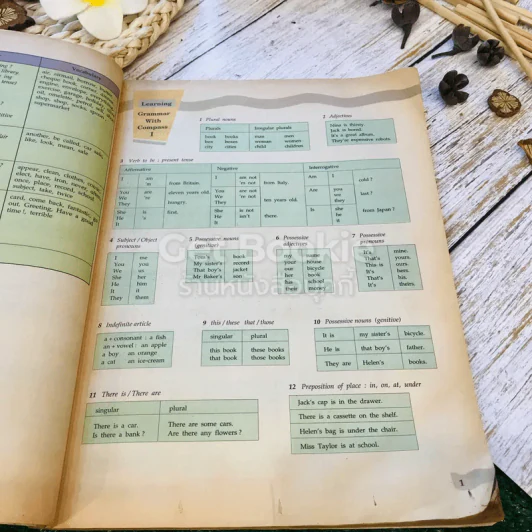 Vocabulary
another, be called, car sale,
like, look, mean, sale
appear, clean, clothes,
once, place, record, school
subject, take, twice
card, come back, fantastic,
out, Greeting, Have a good
time !, terrible
supermarket
Learning
Grammar
With
Compass
1
1 Plural nouns
Plurals Irregular plurals
book books man men
box boxes woman women
city cities child children
2 Adjectives
Nina is thirsty.
Jack is bored.
It's a great album.
They're expensive robots.
3 Verb to be : present tense
Affirmative Negative Interrogative
I am from Britain. I am not from Italy. Am I cold ?
'm 'm not
You are eleven years old. You are not ten years old. Are you last ?
We 're We 're not we
They hungry. They they
She is first. She is not there. Is she from Japan ?
He 's He isn't he
It It it
4 Subject / Object
pronouns
I me
You you
We us
She her
He him
It it
They them
5 Possessive nouns
(genitive)
Tom's book
My sister's record
That boy's jacket
Mr Baker's son
6 Possessive
adjectives
my name
your house
our bicycle
her book
his school
their money
7 Possessive
pronouns
It's mine.
That's yours.
This is ours.
It's hers.
It's his.
theirs.
Get Bookie
ร้านหนังสือลูกกี้
8 Indefinite article
a + consonant : a fish
an + vowel : an apple
a boy an orange
a cat an ice-cream
9 this / these that / those
singular plural
this book these books
that book those books
10 Possessive nouns (genitive)
It is my sister's bicycle.
He is that boy's father.
They are Helen's books.
11 There is / There are
singular plural
There is a car. There are some cars.
Is there a bank ? Are there any flowers ?
12 Preposition of place : in, on, at, under
Jack's cap is in the drawer.
There is a cassette on the shelf.
Helen's bag is under the chair.
Miss Taylor is at school.
1